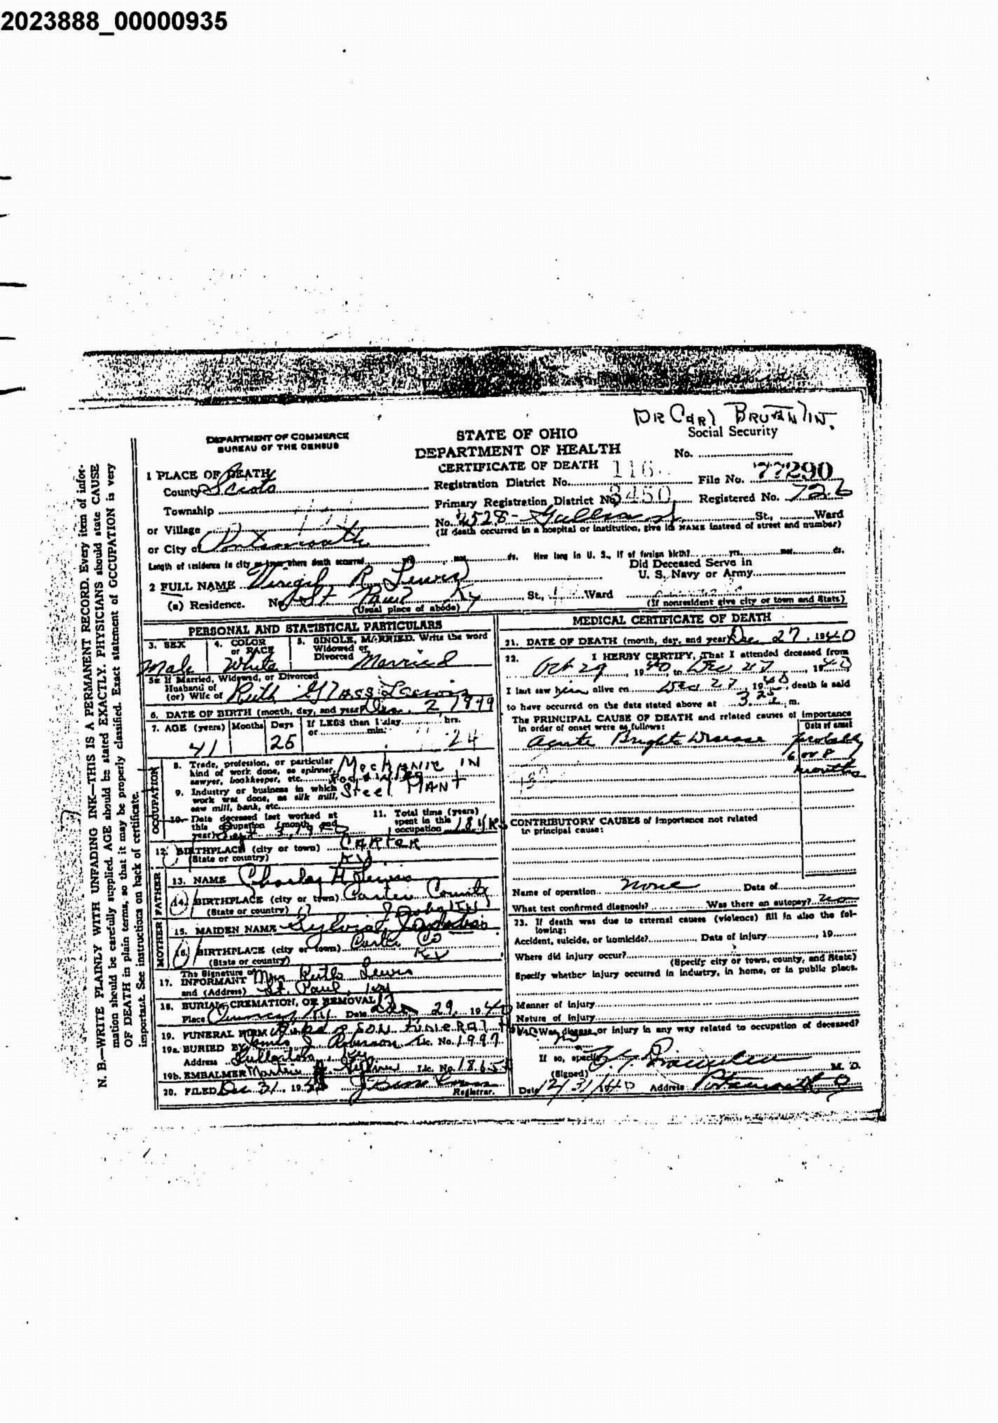 2023888_00000935
DR Carl
Social Security
DEPARTMENT OF COMMERCE
BUREAU OF THE CENSUS
STATE OF OHIO
DEPARTMENT OF HEALTH
CERTIFICATE OF DEATH
No.
1 PLACE OF DEATH
County Scioto
Registration District No. 116
File No. 77290
Township
Primary Registration District No. 8450
Registered No. 726
or Village
No. 2528 Gallia St., Ward
(If death occurred in a hospital or institution, give its NAME instead of street and number)
or City of Portsmouth
Length of residence in city or town where death occurred yrs. mos. ds. How long in U. S., if of foreign birth? yrs. mos. ds.
2 FULL NAME Virgil R Lewis
Did Deceased Serve in
U. S. Navy or Army
(a) Residence. No. St Paul Ky St., Ward
(Usual place of abode)
(If nonresident give city or town and State)
PERSONAL AND STATISTICAL PARTICULARS
3. SEX
Male
4. COLOR or RACE
White
5. SINGLE, MARRIED. Write the word
Widowed or
Divorced Married
5a If Married, Widowed, or Divorced
Husband of
(or) Wife of Ruth Glass Lewis
6. DATE OF BIRTH (month, day, and year) Dec. 2 1899
7. AGE (years) Months Days If LESS than 1 day hrs.
or min.
41 25 24
OCCUPATION
8. Trade, profession, or particular
kind of work done, as spinner,
sawyer, bookkeeper, etc. Mechanic IN
9. Industry or business in which
work was done, as silk mill,
saw mill, bank, etc. Steel PLANT
10. Date deceased last worked at
this occupation (month and
year)
11. Total time (years)
spent in this
occupation 18 YRS
12. BIRTHPLACE (city or town) CARTER
(State or country) KY.
FATHER
13. NAME Charley H Lewis
14. BIRTHPLACE (city or town) Carter County
(State or country)
MOTHER
15. MAIDEN NAME
16. BIRTHPLACE (city or town) Carter Co
(State or country) Ky
17. The Signature of
INFORMANT Mrs Ruth Lewis
and (Address) St. Paul, Ky
18. BURIAL, CREMATION, OR REMOVAL
Place Date Dec 29, 1940
19. FUNERAL FIRM & SON FUNERAL H
19a. BURIED BY James J Roberson Lic. No. 1997
Address Fullerton, Ky
19b. EMBALMER Lic. No. 1865
20. FILED Dec. 31 19
Registrar.
MEDICAL CERTIFICATE OF DEATH
21. DATE OF DEATH (month, day, and year) Dec 27, 1940
22. I HERBY CERTIFY, That I attended deceased from
Oct 29, 1940, to Dec 27, 1940
I last saw him alive on Dec 27, 1940, death is said
to have occurred on the date stated above at 3 m.
The PRINCIPAL CAUSE OF DEATH and related causes of importance
in order of onset were as follows:
Date of onset
Acute Brights Disease probably
6 or 8
months
CONTRIBUTORY CAUSES of importance not related
to principal cause:
Name of operation None Date of
What test confirmed diagnosis? Was there an autopsy? No
23. If death was due to external causes (violence) fill in also the following:
Accident, suicide, or homicide? Date of injury 19
Where did injury occur?
(Specify city or town, county, and State)
Specify whether injury occurred in industry, in home, or in public place.
Manner of injury
Nature of injury
24. Was disease, or injury in any way related to occupation of deceased?
If so, specify
(Signed) M. D.
Date 12/31/40 Address Portsmouth O
N. B.—WRITE PLAINLY WITH UNFADING INK—THIS IS A PERMANENT RECORD. Every item of infor-
mation should be carefully supplied. AGE should be stated EXACTLY. PHYSICIANS should state CAUSE
OF DEATH in plain terms, so that it may be properly classified. Exact statement of OCCUPATION is very
important. See instructions on back of certificate.